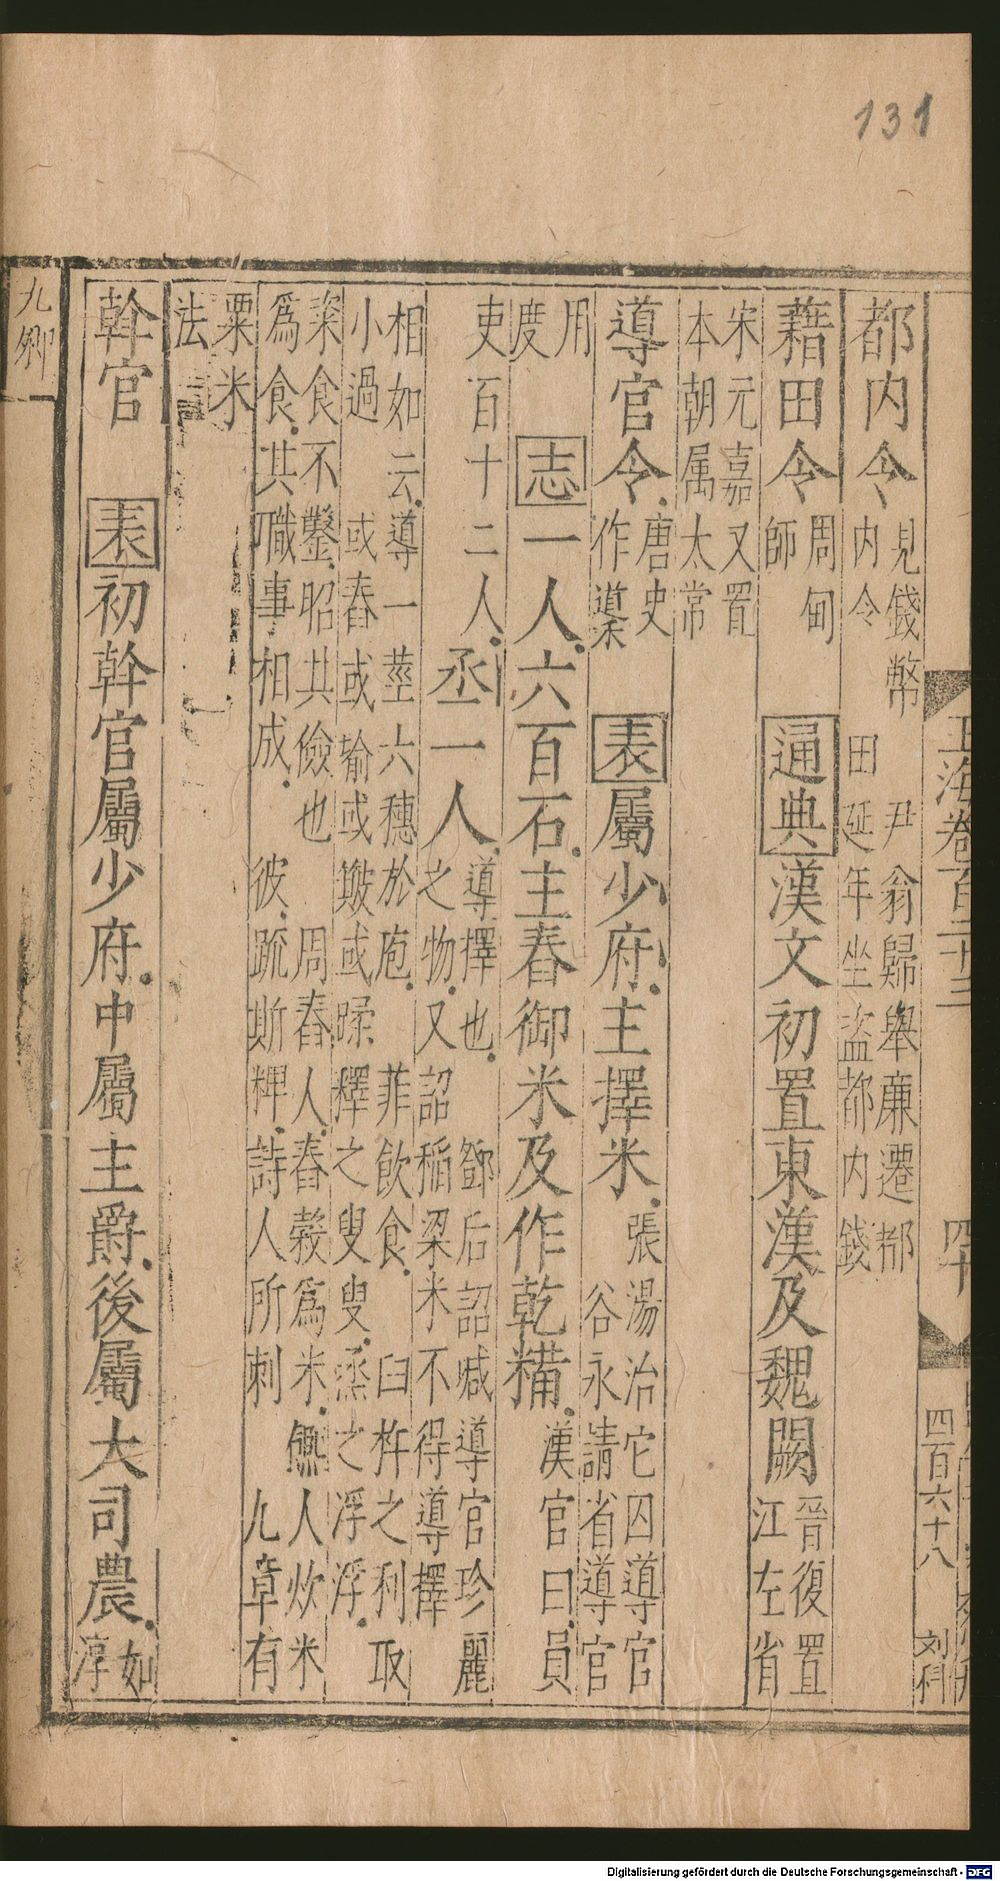 131
玉海卷一百二十三
四十
四百六十八
刘科
都内令
見錢幣
内令
尹翁歸舉廉遷都
田延年坐盜都内錢
藉田令
周甸
師
通典漢文初置東漢及魏闕
晉復置
江左省
宋元嘉又置
本朝属太常
導官令
唐史
作䆃
表屬少府主擇米
張湯治它囚導官
谷永請省導官
用
度
志一人六百石主舂御米及作乾糒
漢官曰員
吏百十二人
丞一人
導擇也
之物又詔
鄧后詔減導官珍麗
稻梁米不得導擇
相如云導一莖六穗於庖
菲飲食
臼杵之利取
小過
或舂或揄或簸或蹂釋之叟叟烝之浮浮
粢食不鑿昭其儉也
周舂人舂穀爲米
饎人炊米
爲食其職事相成
彼疏斯粺詩人所刺
九章有
粟米
法
幹官
表初幹官屬少府中屬主爵後屬大司農
如
淳
九卿
Digitalisierung gefördert durch die Deutsche Forschungsgemeinschaft - DFG